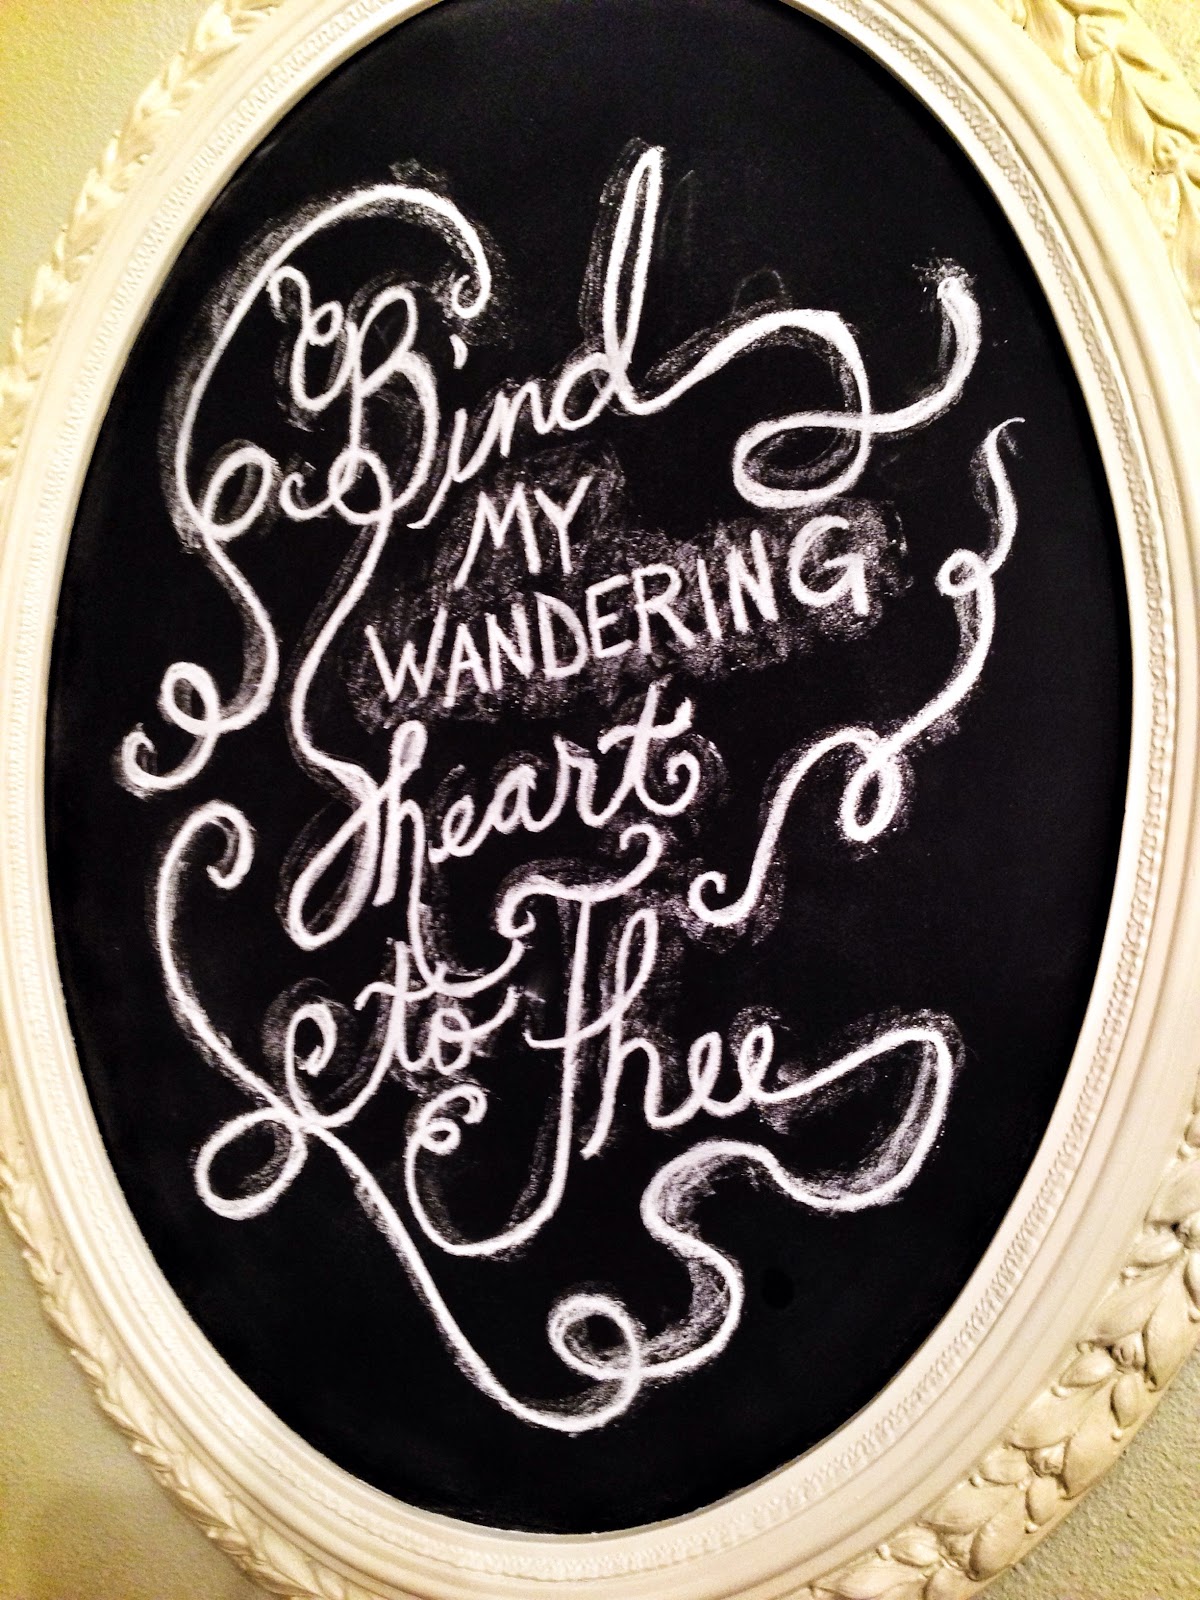 Bind
MY
WANDERING
heart
to Thee